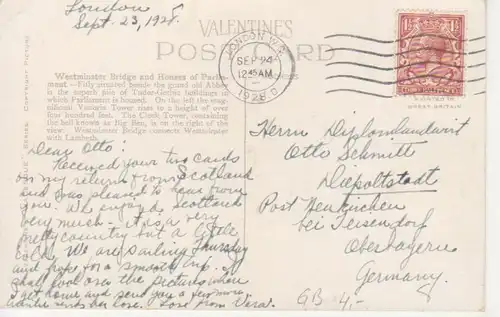 London
Sept. 23, 1928
VALENTINES
POST CARD
LONDON W.
SEP 24
12 45 AM
1928
Westminster Bridge and Houses of Parlia-
ment —Fitly situated beside the grand old Abbey
is the superb pile of Tudor-Gothic buildings of
which Parliament is housed. On the left the mag-
nificent Victoria Tower rises to a height of over
four hundred feet. The Clock Tower, containing
the bell known as Big Ben, is on the right of the
view. Westminster Bridge connects Westminster
with Lambeth.
COPYRIGHT PICTURE
SERIES
GREAT BRITAIN
Dear Otto:
Received your two cards
on my return from Scotland
and was pleased to hear from
you. We enjoyed Scotland
very much - it is a very
pretty country but a little
cold. We are sailing Thursday
and hope for a smooth trip. I
shall look over the pictures when
I get home and send you a few more.
sends her love. Love from Vera.
Herrn Diplomlandwirt
Otto Schmitt
Diepoltstadt
Post Neukirchen
bei Teisendorf
Oberbayern
Germany.
GB 4,-